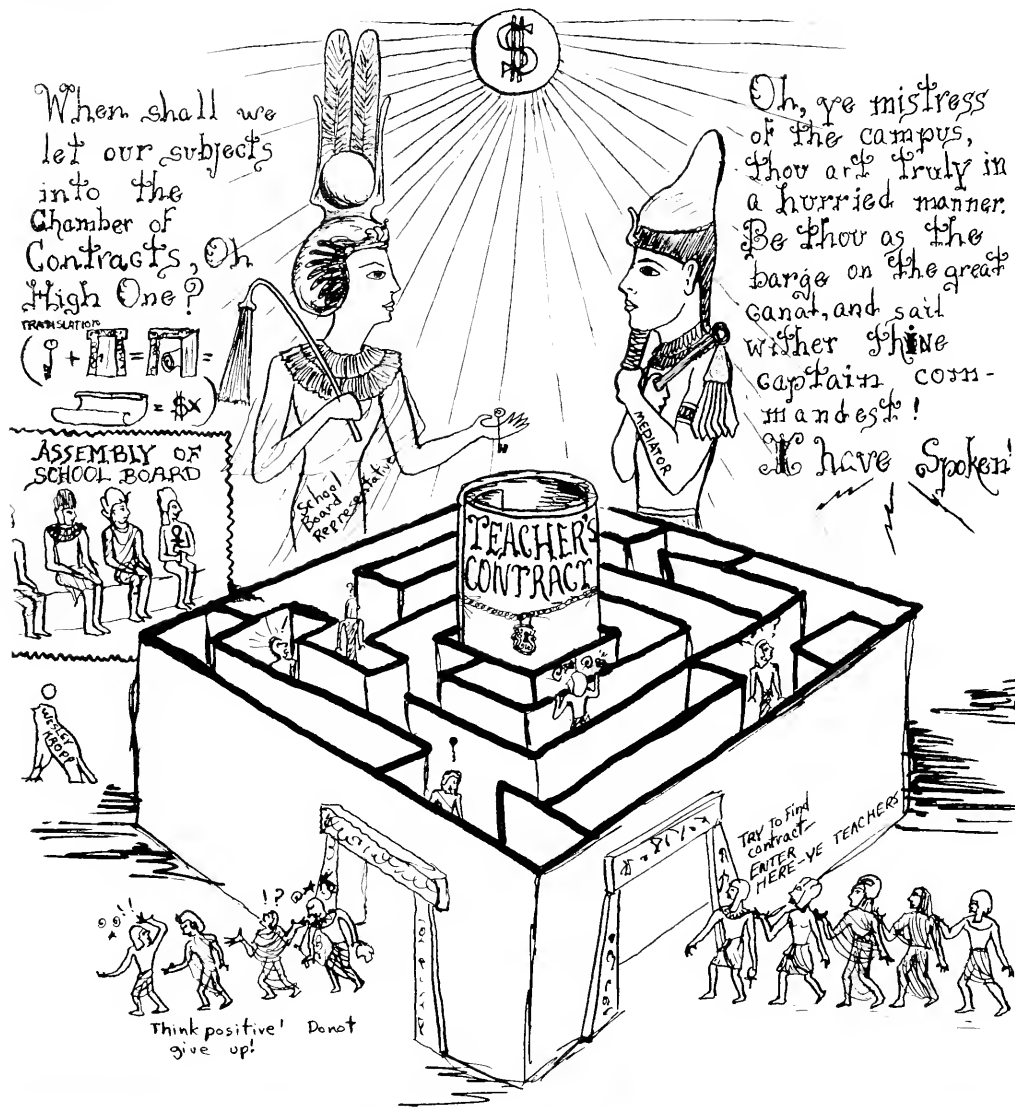 $
When shall we
let our subjects
into the
Chamber of
Contracts, Oh
High One?
TRANSLATION
( + = =
= $x)
Oh, ye mistress
of the campus,
thou art truly in
a hurried manner.
Be thou as the
barge on the great
canal, and sail
wither thine
captain com-
mandest!
I have Spoken!
School
Board
Representative
MEDIATOR
ASSEMBLY OF
SCHOOL BOARD
TEACHER'S
CONTRACT
WESLEY
KROPP
TRY TO Find
contract—
ENTER
HERE-YE TEACHERS
!?
Think positive! Donot
give up!